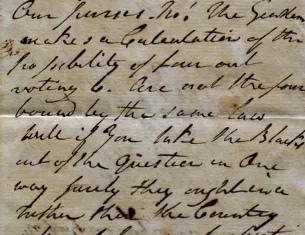 Our purses. No! The Gentlem
makes a Calculation of the
possibility of four out
voting 6. Are not the four
bound by the same law
Well if you take the Blacks
out of the Question in One
way surely they ought
the Country